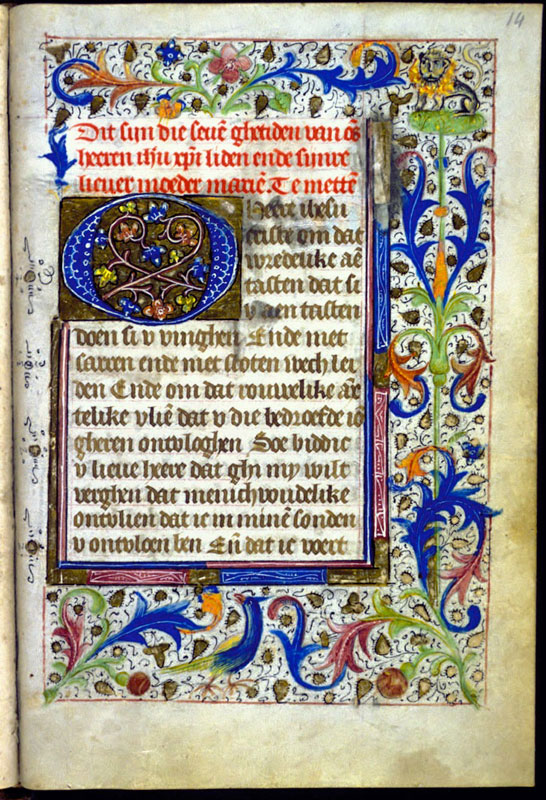 14
Dit sijn die seuē ghetiden van ōs
heeren ihū xpī liden ende sijnre
lieuer moeder mariē Te mettē
O Heere ihesu
criste om dat
wredelike aē
tasten dat si
v aen tasten
doen si v vinghen Ende met
sarren ende met stoten wech lei
den Ende om dat rouwelike
telike vliē dat v die bedroefde iō
gheren ontvloghen Soe biddic
v lieue heere dat ghi my wilt
verghen dat menichvoudelike
ontvlien dat ic in minē sonden
v ontvloen ben Eñ dat ic voert